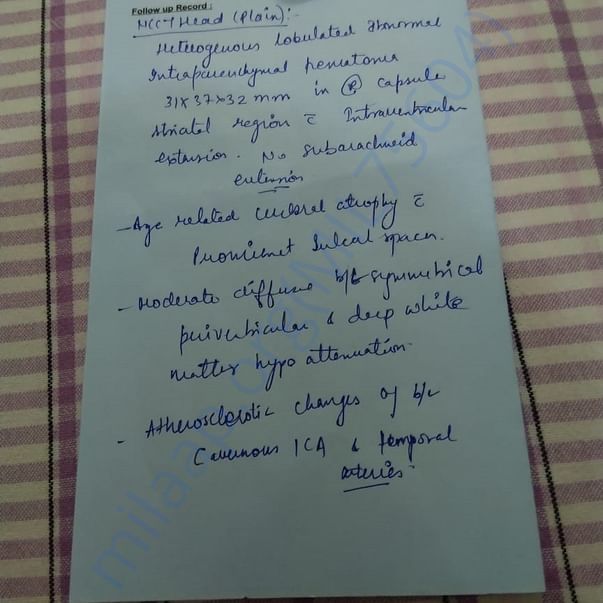 Follow up Record :
NCCT Head (Plain):-
Heterogenous lobulated abnormal
Intraparenchymal hematoma
31x37x32 mm in (R) capsule
striatal region c̄ Intraventricular
extension. No subarachnoid
extension
- Age related cerebral atrophy c̄
Prominent sulcal spaces.
- Moderate diffuse b/L symmetrical
periventricular & deep white
matter hypo attenuation.
- Atherosclerotic changes of b/L
Cavernous ICA & temporal
arteries.